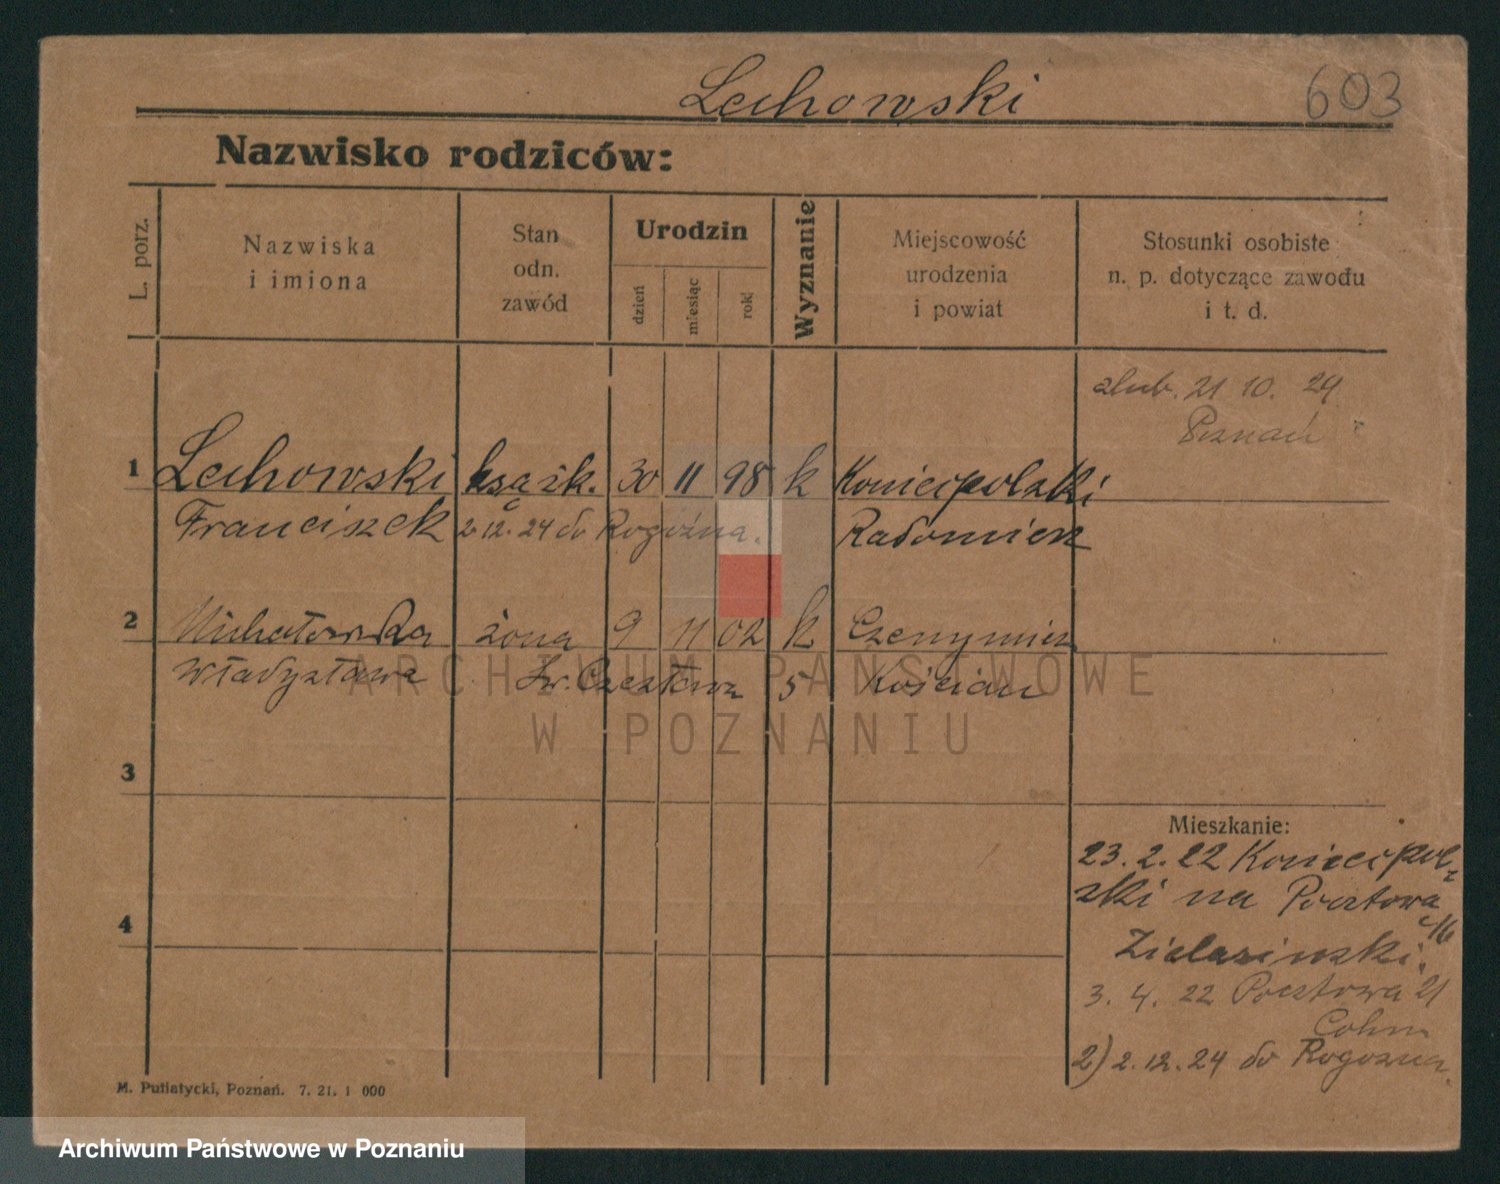 Lechowski
603
Nazwisko rodziców:
L. porz.
Nazwiska
i imiona
Stan
odn.
zawód
Urodzin
dzień
miesiąc
rok
Wyznanie
Miejscowość
urodzenia
i powiat
Stosunki osobiste
n. p. dotyczące zawodu
i t. d.
ślub. 21 10. 24
Poznań
1 Lechowski książk. 30 11 98 k Koniecpolski
Franciszek 2.12.24 do Rogoźna. Radomierz
2 Michałowska żona 9 11 02 k
Władysława Czesława 5 Kościan
3
Mieszkanie:
23.2.22 Koniecpol-
ski na Pocztowa
16
4
Zielasinski.
3. 4. 22 Pocztowa 21
Cohn
2) 2.12.24 do Rogozna.
M. Putiatycki, Poznań. 7. 21. 1 000
ARCHIWUM PAŃSTWOWE
W POZNANIU
Archiwum Państwowe w Poznaniu